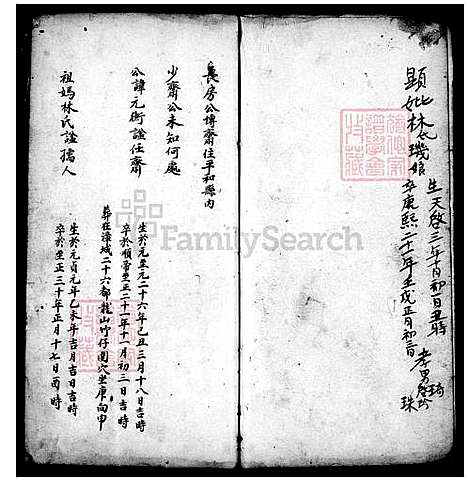 顯妣林氏璣娘
生天啓三年十月初一日丑時
卒康熙二十一年壬戌正月初三日
孝男
琦
珠
長房公博齋住平和縣內
少齋公未知何處
公諱元衛謚任齋
生於元至元二十六年己丑三月十八日吉時
卒於順帝至正二十一年十一月初三日吉時
葬在漳城二十六都龍山竹仔圍穴坐庚向申
祖媽林氏謚孺人
生於元貞元年乙未年吉月吉日吉時
卒於至正三十年正月十七日酉時
FamilySearch